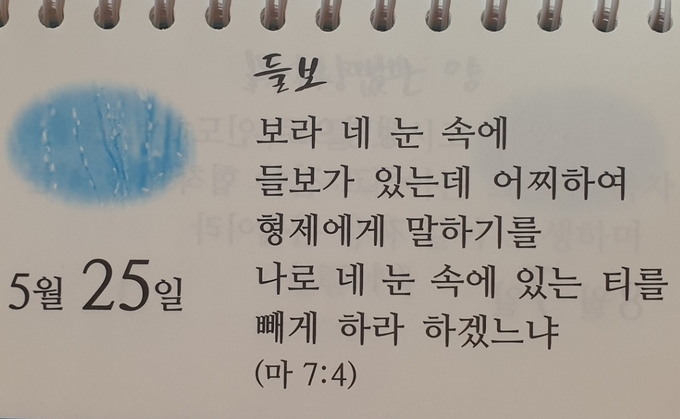 들보
보라 네 눈 속에
들보가 있는데 어찌하여
형제에게 말하기를
나로 네 눈 속에 있는 티를
빼게 하라 하겠느냐
(마 7:4)
5월 25일